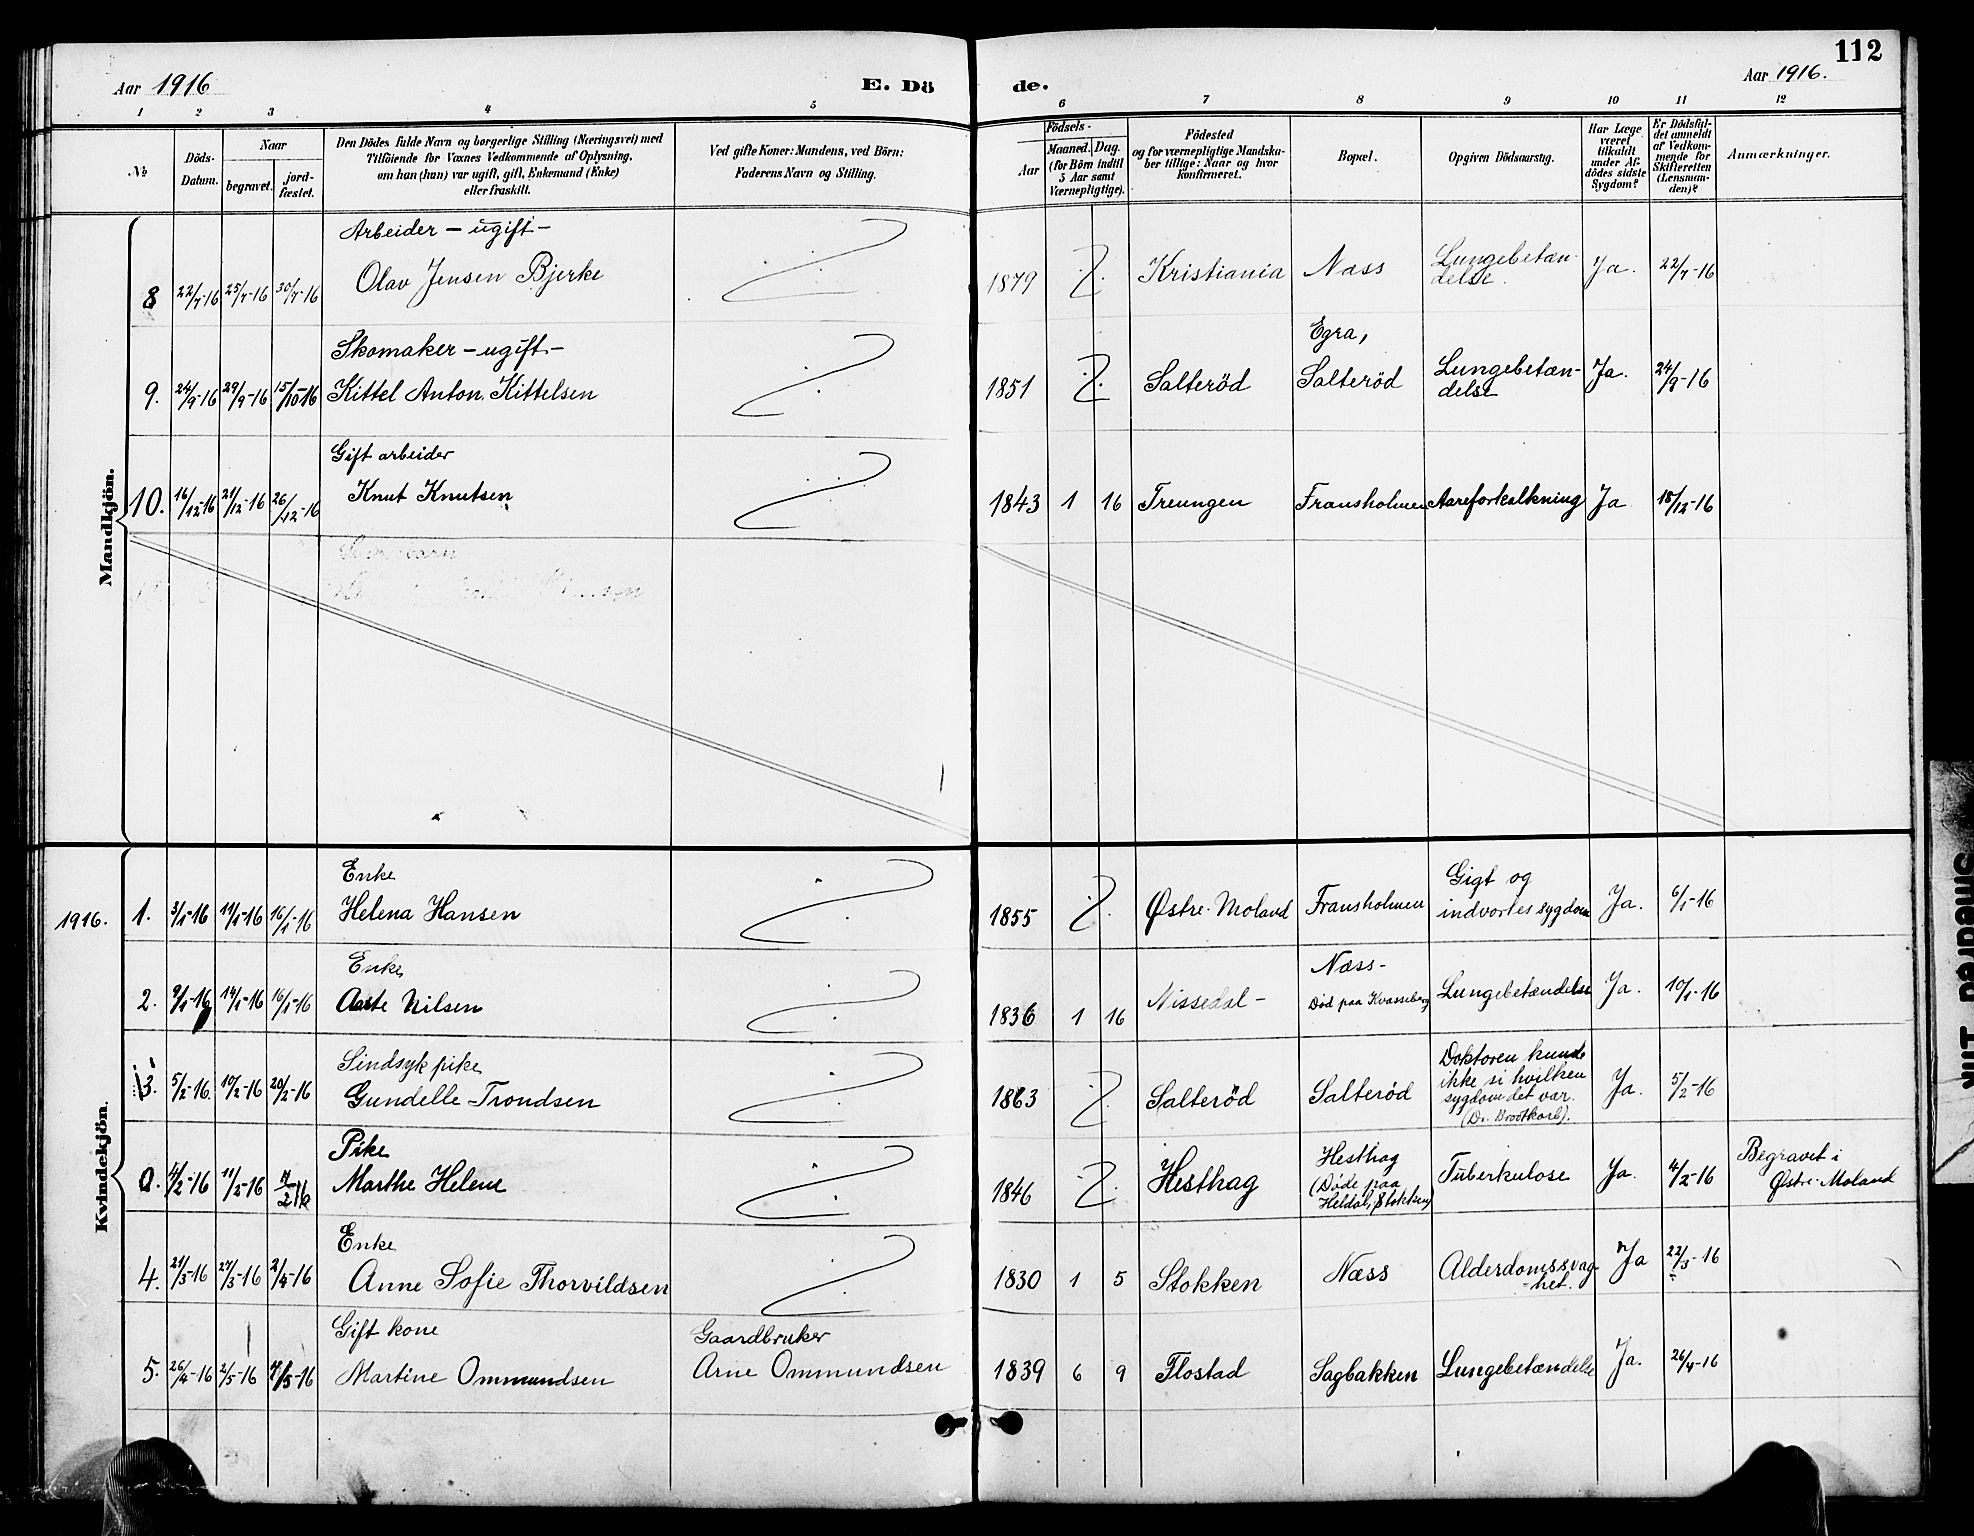 112
Aar 1916
E. Dö
de.
Aar 1916.
1 2 3 4 5 6 7 8 9 10 11 12
No
Döds-
Datum.
Naar
begravet.
jord-
fæstet.
Den Dödes fulde Navn og borgerlige Stilling (Næringsvei) med
Tilföiende for Voxnes Vedkommende af Oplysning,
om han (hun) var ugift, gift, Enkemand (Enke)
eller fraskilt.
Ved gifte Koner: Mandens, ved Börn:
Faderens Navn og Stilling.
Födsels-
Aar
Maaned. Dag.
(for Börn indtil
5 Aar samt
Værnepligtige).
Födested
og for værnepligtige Mandska-
ber tillige: Naar og hvor
konfirmeret.
Bopæl.
Opgiven Dödsaarsag.
Har Læge
været
tilkaldt
under Af-
dödes sidste
Sygdom?
Er Dödsfal-
det anmeldt
af Vedkom-
mende for
Skifteretten
(Lensman-
den)?
Anmærkninger.
Mandkjön.
Arbeider - ugift -
8 22/7-16 25/7-16 30/7-16 Olav Jensen Bjerke 1879 Kristiania Næss Lungebetæn-
delse. Ja. 22/7-16
Skomaker - ugift - Egra,
9. 24/9-16 29/9-16 15/10-16 Kittel Anton Kittelsen 1851 Salteröd Salteröd Lungebetæn-
delse Ja. 24/9-16
Gift arbeider
10. 16/12-16 21/12-16 26/12-16 Knut Knutsen 1843 1 16 Treungen Fransholmen Aareforkalkning Ja 18/12-16
Kvindekjön.
Enke Gigt og
1916. 1. 3/1-16 11/1-16 16/1-16 Helena Hansen 1855 Østre-Moland Fransholmen indvortes sygdom Ja. 6/1-16
Enke Næss-
2. 9/1-16 14/1-16 16/1-16 Aaste Nilsen 1836 1 16 Nissedal - Død paa Kvasseberg Lungebetændelse Ja. 10/1-16
Sindsyk pike Doktoren kunde
ikke si hvilken
3. 5/2-16. 10/2-16 20/2-16 Gundelle Trondsen 1863 Salteröd Salteröd sygdom det var. Ja. 5/2-16
(Dr. Brodtkorb).
Pike Hesthag
0. 4/2-16 11/2-16 11/2 16 Marthe Helene 1846 Hesthag (Døde paa Tuberkulose Ja. 4/2-16 Begravet i
Heldal, Stokken) Østre-Moland
Enke
4. 21/3-16 27/3-16 2/4-16 Anne Sofie Thorvildsen 1830 1 5 Stokken Næss Alderdomssvag-
het. Ja 22/3-16
Gift kone Gaardbruker
5. 26/4-16 2/5-16 7/5-16 Martine Ommundsen Arne Ommundsen 1839 6 9 Flostad Sagbakken Lungebetændelse Ja. 26/4-16